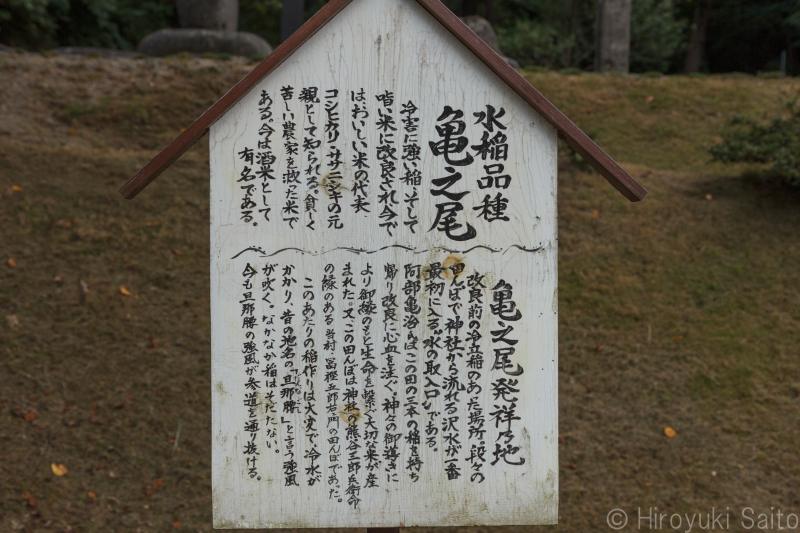 水稲品種
亀之尾
冷害に強い稲、そして
喰い米に改良され今で
は、おいしい米の代表
コシヒカリ・ササニシキの元
親として知られる。貧しく
苦しい農家を救った米で
ある。今は酒米として
有名である。
亀之尾発祥乃地
改良前の冷立稲のあった場所。段々の
田んぼで神社から流れる沢水が一番
最初に入る“水の取入口”である。
阿部亀治さんはこの田の三本の穂を持ち
帰り改良に心血を注ぐ。神々の御導きに
より御縁のもと生命を繋ぐ大切な米が産
まれた。又、この田んぼは神社の熊谷三郎兵衛命
の縁のある 村・冨樫五郎右衛門の田んぼであった。
このあたりの稲作りは大変で、冷水が
かかり、昔の地名の「旦那腰」と言う強風
が吹く。なかなか稲はそだたない。
今も旦那腰の強風が参道を通り抜ける。
© Hiroyuki Saito